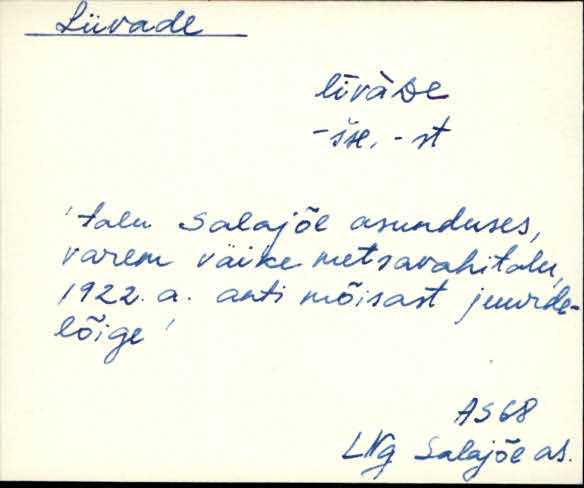 Liivade
līvàDe
-šše, -st
'talu Salajõe asunduses,
varem väike metsavahitalu,
1922. a. anti mõisast juurde-
lõige'
AS68
LNg Salajõe as.